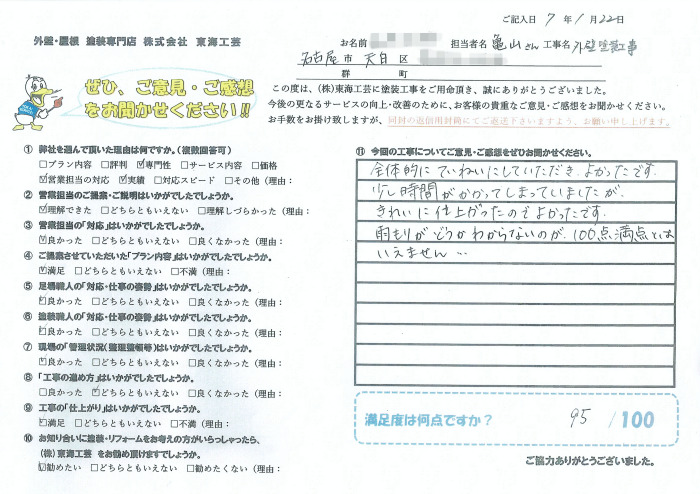 ご記入日 7年1月22日
外壁・屋根 塗装専門店 株式会社 東海工芸
お名前 担当者名 亀山さん 工事名 外壁塗装工事
名古屋市 天白区
郡 町
ぜひ、ご意見・ご感想
をお聞かせください!!
この度は、(株)東海工芸に塗装工事をご用命頂き、誠にありがとうございました。
今後の更なるサービスの向上・改善のために、お客様の貴重なご意見・ご感想をお聞かせください。
お手数をお掛け致しますが、同封の返信用封筒にてご返送下さいますよう、お願い申し上げます。
① 弊社を選んで頂いた理由は何ですか。(複数回答可)
□プラン内容 □評判 ☑専門性 □サービス内容 □価格
☑営業担当の対応 ☑実績 □対応スピード □その他(理由:
② 営業担当のご提案・ご説明はいかがでしたでしょうか。
☑理解できた □どちらともいえない □理解しづらかった(理由:
③ 営業担当の「対応」はいかがでしたでしょうか。
☑良かった □どちらともいえない □良くなかった(理由:
④ ご提案させていただいた「プラン内容」はいかがでしたでしょうか。
☑満足 □どちらともいえない □不満(理由:
⑤ 足場職人の「対応・仕事の姿勢」はいかがでしたでしょうか。
☑良かった □どちらともいえない □良くなかった(理由:
⑥ 塗装職人の「対応・仕事の姿勢」はいかがでしたでしょうか。
☑良かった □どちらともいえない □良くなかった(理由:
⑦ 現場の「管理状況(整理整頓等)はいかがでしたでしょうか。
☑良かった □どちらともいえない □良くなかった(理由:
⑧ 「工事の進め方」はいかがでしたでしょうか。
□良かった ☑どちらともいえない □良くなかった(理由:
⑨ 工事の「仕上がり」はいかがでしたでしょうか。
☑満足 □どちらともいえない □不満(理由:
⑩ お知り合いに塗装・リフォームをお考えの方がいらっしゃったら、
(株)東海工芸 をお勧め頂けますでしょうか。
☑勧めたい □どちらともいえない □勧めたくない(理由:
⑪ 今回の工事についてご意見・ご感想をぜひお聞かせください。
全体的にていねいにしていただき、よかったです。
少し時間がかかってしまっていましたが、
きれいに仕上がったのでよかったです。
雨もりがどうかわからないのが、100点満点とは
いえません…
満足度は何点ですか? 95 /100
ご協力ありがとうございました。